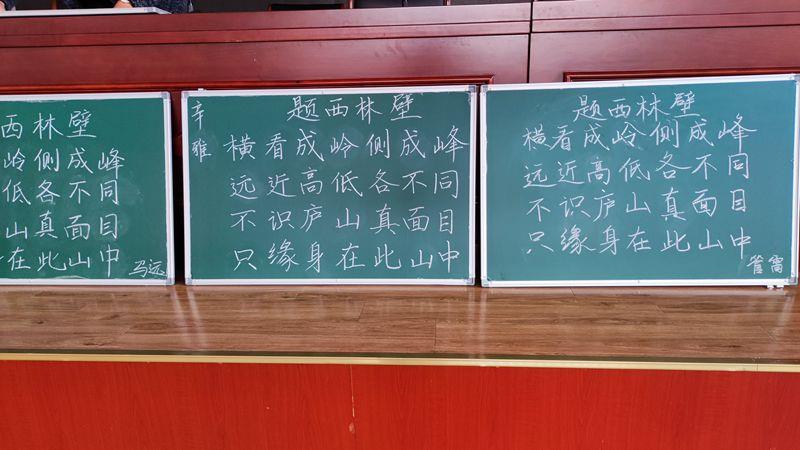 西林壁
岭侧成峰
低各不同
山真面目
在此山中
马远
辛雅
题西林壁
横看成岭侧成峰
远近高低各不同
不识庐山真面目
只缘身在此山中
题西林壁
横看成岭侧成峰
远近高低各不同
不识庐山真面目
只缘身在此山中